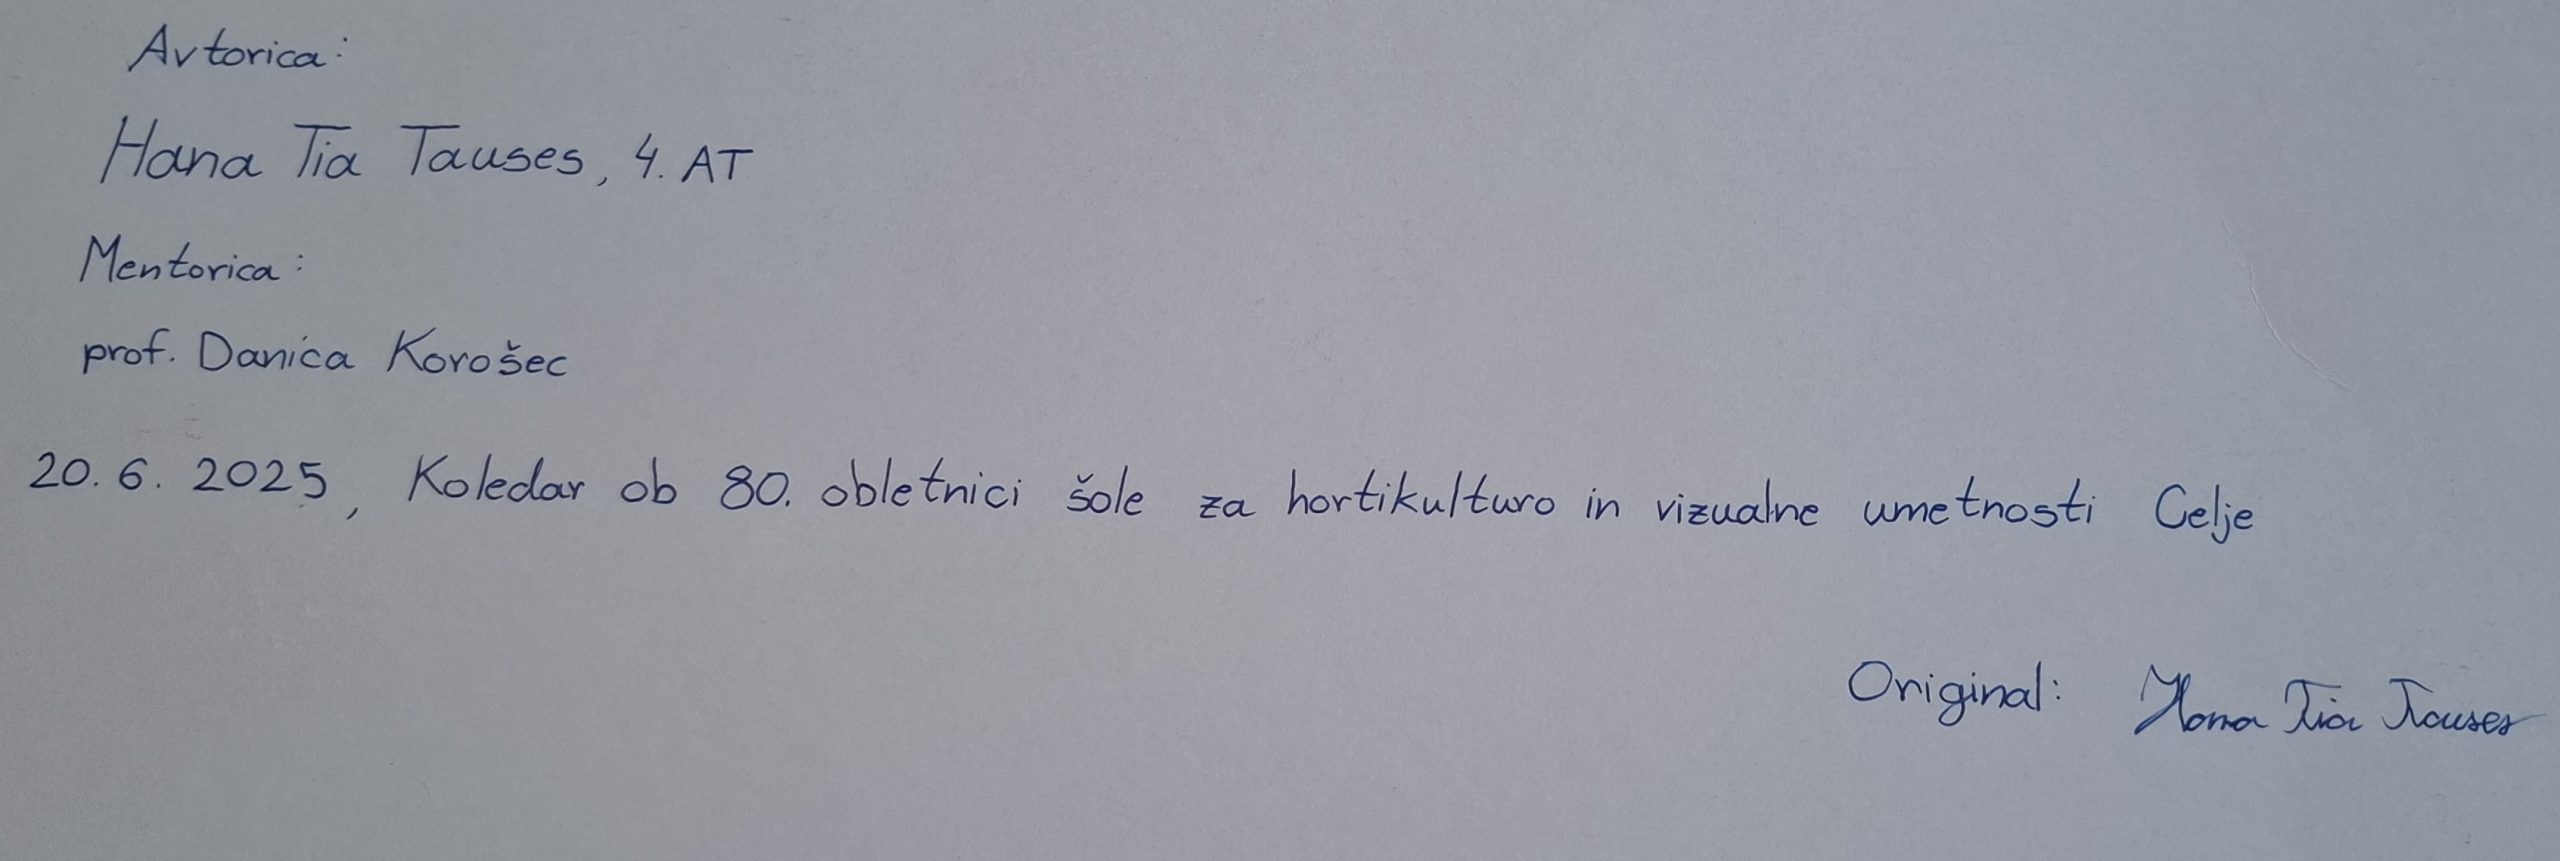 Avtorica:
Hana Tia Tauses, 4. AT
Mentorica:
prof. Danica Korošec
20. 6. 2025, Koledar ob 80. obletnici šole za hortikulturo in vizualne umetnosti Celje
Original: Hana Tia Tauses